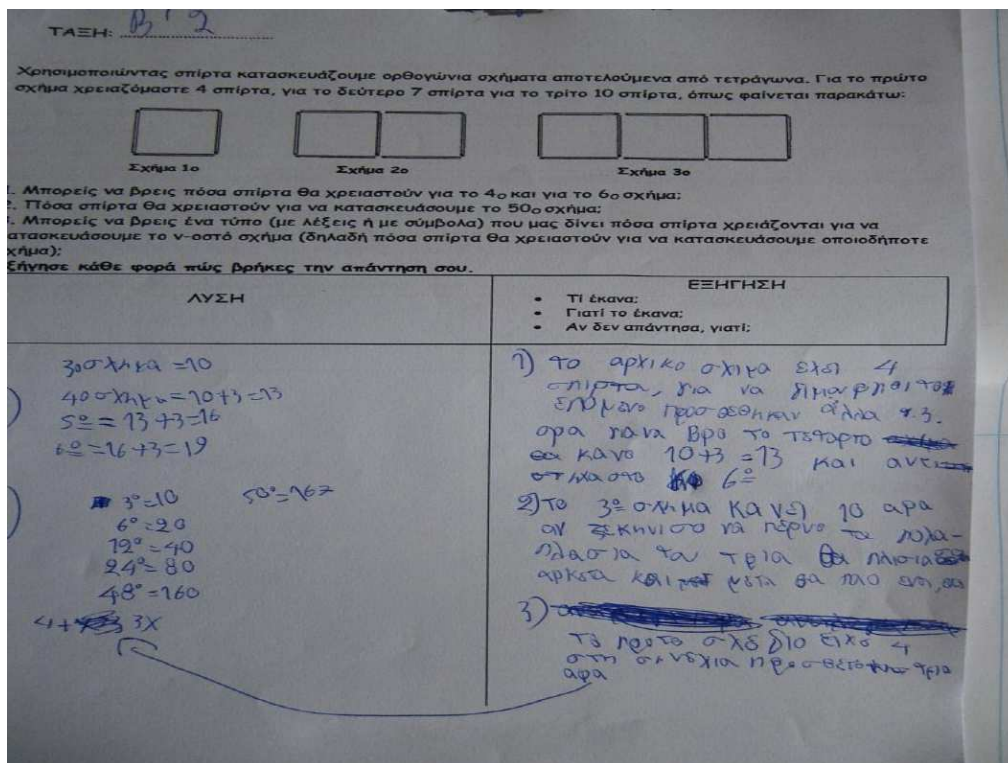 ΤΑΞΗ: Β' 2
Χρησιμοποιώντας σπίρτα κατασκευάζουμε ορθογώνια σχήματα αποτελούμενα από τετράγωνα. Για το πρώτο
σχήμα χρειαζόμαστε 4 σπίρτα, για το δεύτερο 7 σπίρτα για το τρίτο 10 σπίρτα, όπως φαίνεται παρακάτω:
Σχήμα 1ο Σχήμα 2ο Σχήμα 3ο
. Μπορείς να βρεις πόσα σπίρτα θα χρειαστούν για το 4ο και για το 6ο σχήμα;
. Πόσα σπίρτα θα χρειαστούν για να κατασκευάσουμε το 50ο σχήμα;
. Μπορείς να βρεις ένα τύπο (με λέξεις ή με σύμβολα) που μας δίνει πόσα σπίρτα χρειάζονται για να
ατασκευάσουμε το ν-οστό σχήμα (δηλαδή πόσα σπίρτα θα χρειαστούν για να κατασκευάσουμε οποιοδήποτε
χήμα);
ξήγησε κάθε φορά πώς βρήκες την απάντηση σου.
ΛΥΣΗ
ΕΞΗΓΗΣΗ
• Τί έκανα;
• Γιατί το έκανα;
• Αν δεν απάντησα, γιατί;
3ο σχημα =10
4ο σχημα =10+3=13
5º = 13+3=16
6º =16+3=19
3º=10 50º=167
6º=20
12º=40
24º=80
48º=160
4+ 3x
1) το αρχικο σχιμα εχει 4
σπιρτα, για να
επομενο προσθεθηκαν αλλα 3.
αρα για να βρο το τεταρτο
θα κανο 10+3=13 και αντι
στηχα στο 6º
2) το 3º σχημα κανει 10 αρα
αν ξεκηνισο να περνο τα πολα-
πλασια του τρια θα πλισιασο
αρκετα και μετα θα
3)
το προτο σχεδιο ειχε 4
στη συνεχια τρια
αρα